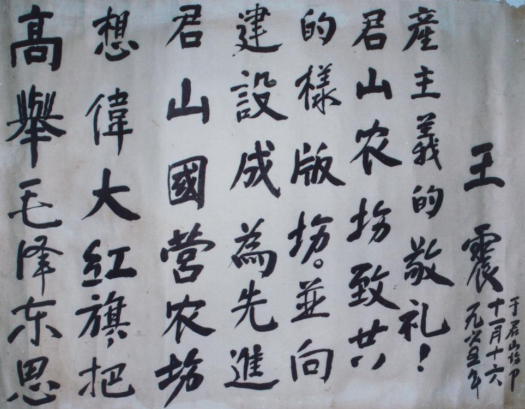 高舉毛泽东思
想偉大红旗,把
君山國营农场
建設成為先進
的樣版场。並向
君山农场致共
產主義的敬礼!
王震
一九六五年
十一月十六
于君山